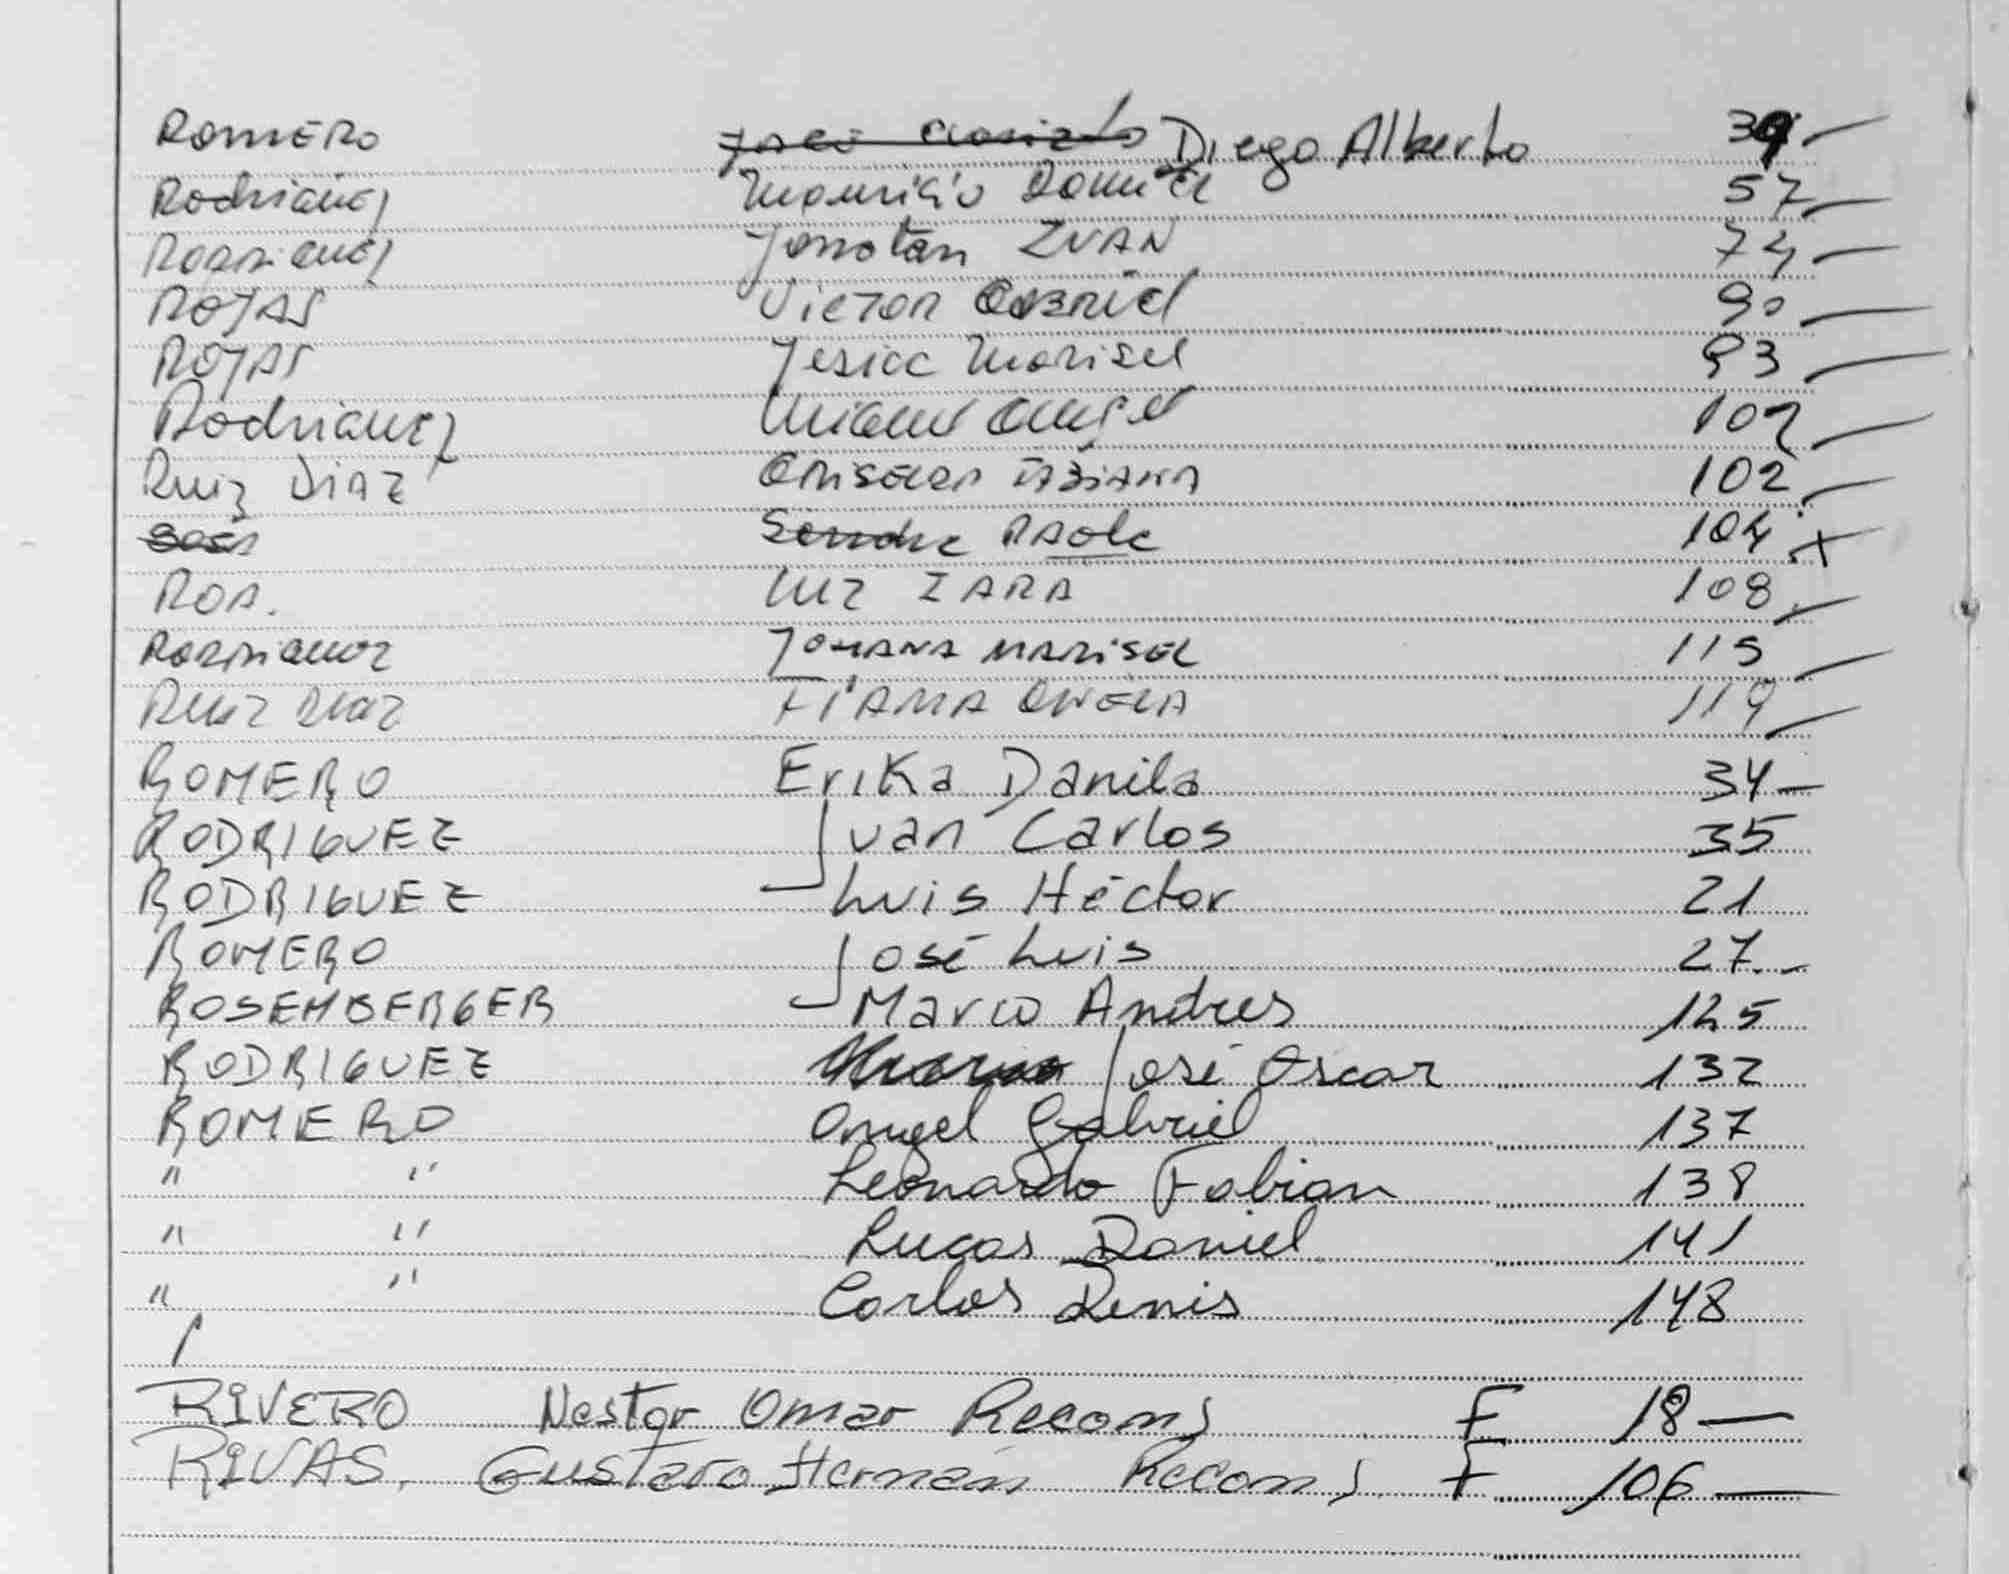 ROMERO Diego Alberto 39 —
Rodriguez Mauricio Daniel 57 —
Rodriguez Jonatan IVAN 74 —
ROJAS Victor Gabriel 90 —
ROJAS Jesica Marisel 93 —
Rodriguez Miguel Angel 102 —
Ruiz DIAZ GRISELDA FABIANA 102 —
Sosa Sandra PAOLA 104 x
ROA. LUZ ZARA 108 —
RODRIGUEZ JOHANA MARISEL 115 —
RUIZ DIAZ FIAMA 119 —
ROMERO Erika Danila 34 —
RODRIGUEZ Juan Carlos 35
RODRIGUEZ Luis Héctor 21
ROMERO José Luis 27 -
ROSEMBERGER Marco Andres 125
RODRIGUEZ José Oscar 132
ROMERO Angel Gabriel 137
" " Leonardo Fabian 138
" " Lucas Daniel 141
" " Carlos Denis 148
RIVERO Nestor Omar Recons F 18 —
RIVAS, Gustavo Hernán Recons F 106 —